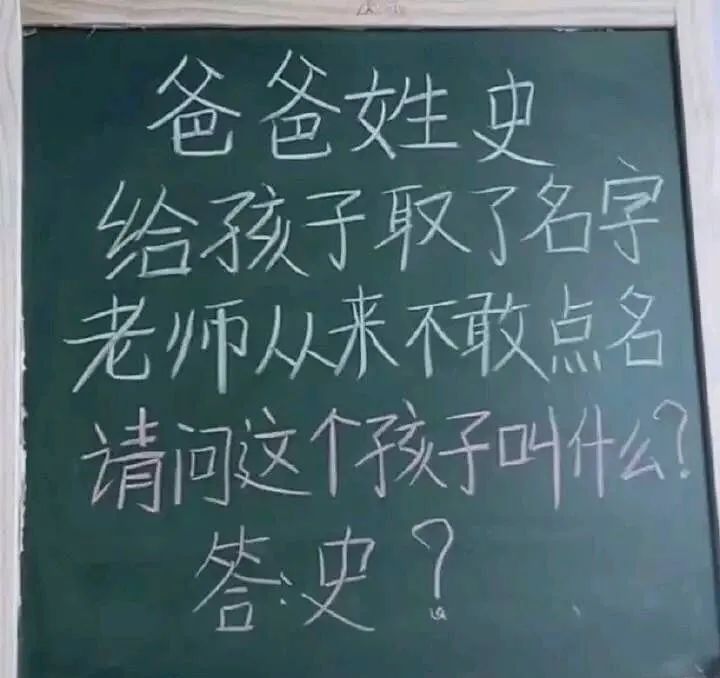 爸爸姓史
给孩子取了名字
老师从来不敢点名
请问这个孩子叫什么?
答:史?